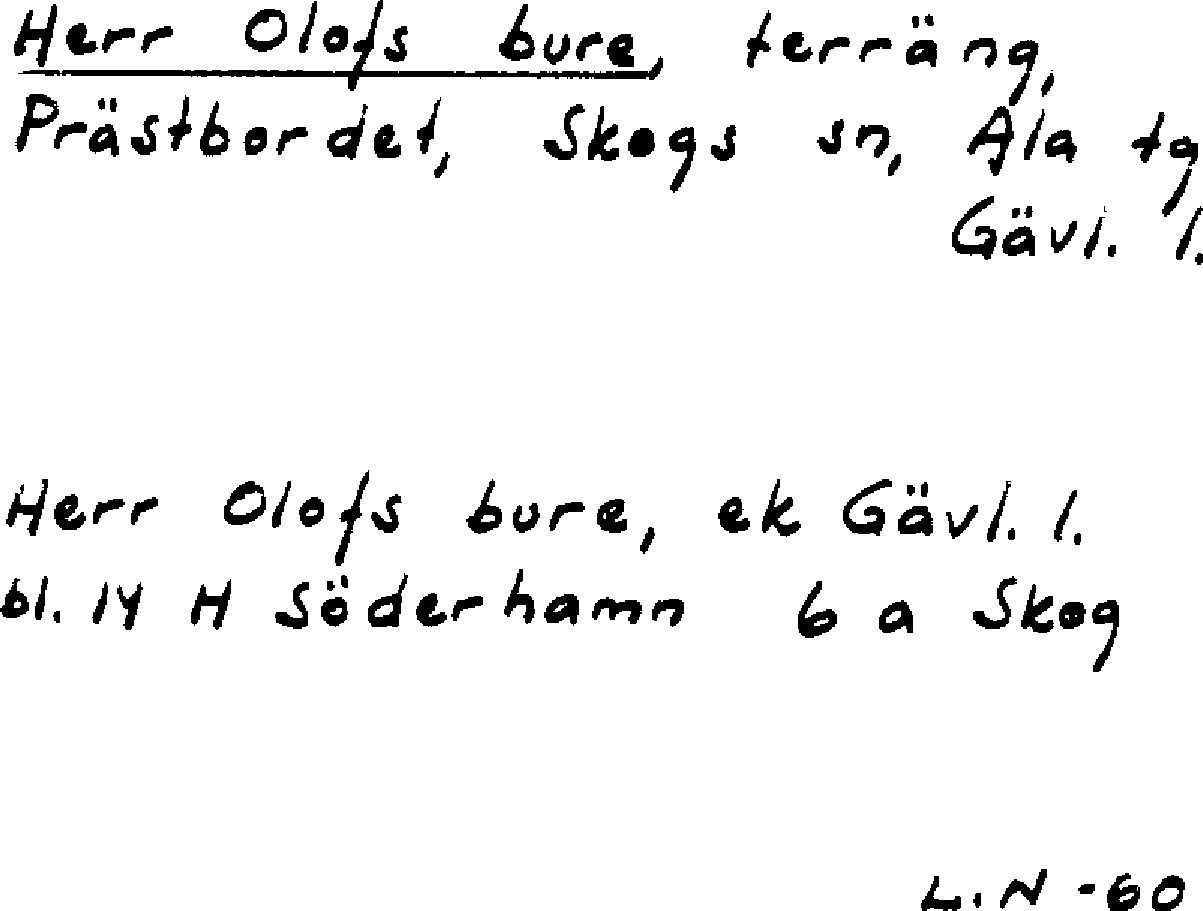 Herr Olofs bure, terräng,
Prästbordet, Skogs sn, Ala tg
Gävl. l.
Herr Olofs bure, ek Gävl. l.
bl. 14 H Söderhamn 6 a Skog
L.N -60